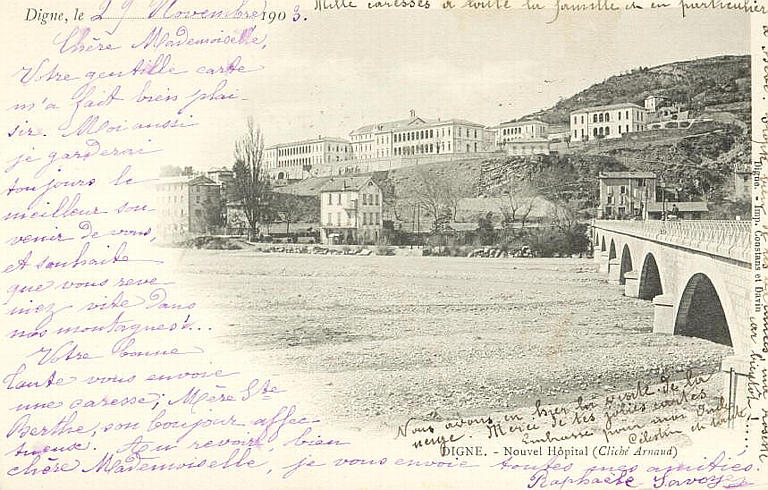 Digne, le 29 Novembre 1903.
Mille caresses à toute la famille et en particulier
Chère Mademoiselle,
Votre gentille carte
m'a fait bien plai-
sir. Moi aussi
je garderai
toujours le
meilleur sou-
venir de vous,
et souhaite
que vous reve-
niez vite dans
nos montagnes...
Votre bonne
tante vous envoie
une caresse; Mère Ste
Berthe, son bonjour affec-
tueux. Au revoir, bien
chère Mademoiselle, je vous envoie toutes mes amitiés.
Raphaële
Nous avons eu hier la visite de la
neuge. Merci de tes jolies cartes
Embrasse pour moi
Célestin et
DIGNE. - Nouvel Hôpital (Cliché Arnaud)
Digne. - Imp. Constans et Davin